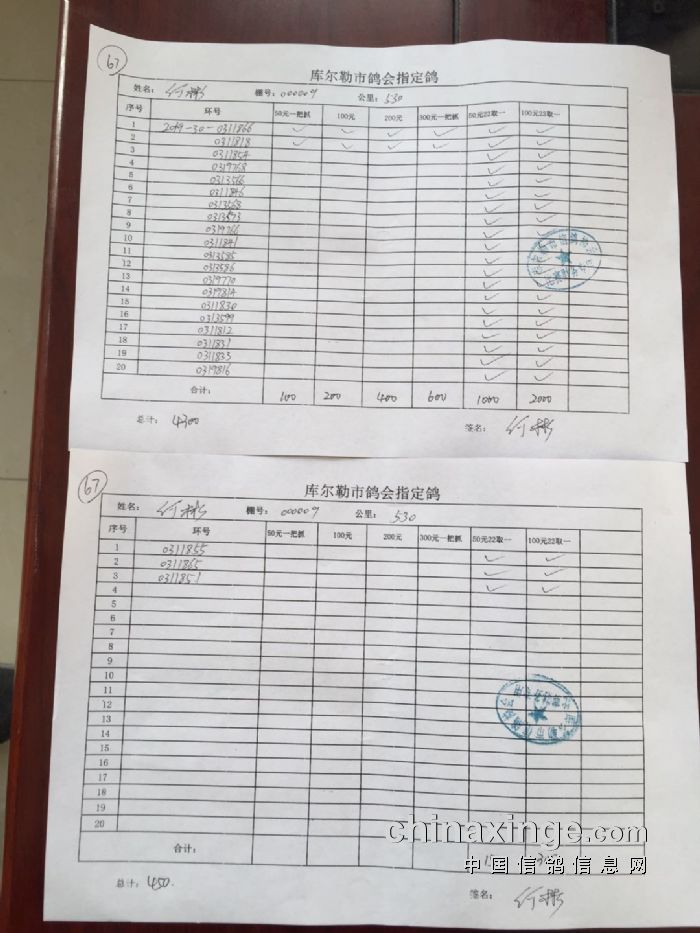 67
库尔勒市鸽会指定鸽
姓名: 何彬 棚号: 000009 公里: 530
序号 环号 50元一把抓 100元 200元 300元一把抓 50元22取一 100元22取一
1 2019-30-0311866 ✓ ✓ ✓ ✓ ✓ ✓
2 0311818 ✓ ✓ ✓ ✓ ✓ ✓
3 0311854 ✓ ✓
4 0319768 ✓ ✓
5 0313566 ✓ ✓
6 0311846 ✓ ✓
7 0313568 ✓ ✓
8 0313573 ✓ ✓
9 0319766 ✓ ✓
10 0311841 ✓ ✓
11 0313585 ✓
12 0313586 ✓
13 0319770 ✓ ✓
14 0319814 ✓ ✓
15 0311830 ✓ ✓
16 0313599 ✓ ✓
17 0311812 ✓ ✓
18 0311831 ✓ ✓
19 0311835 ✓ ✓
20 0319816 ✓ ✓
合计: 100 200 400 600 1000 2000
总计: 4300 签名: 何彬
67
库尔勒市鸽会指定鸽
姓名: 何彬 棚号: 000009 公里: 530
序号 环号 50元一把抓 100元 200元 300元一把抓 50元22取一 100元22取一
1 0311855 ✓ ✓
2 0311865 ✓ ✓
3 0311851 ✓ ✓
4
5
6
7
8
9
10
11
12
13
14
15
16
17
18
19
20
合计:
总计: 450. 签名: 何彬
chinaxinge.com
中国信鸽信息网